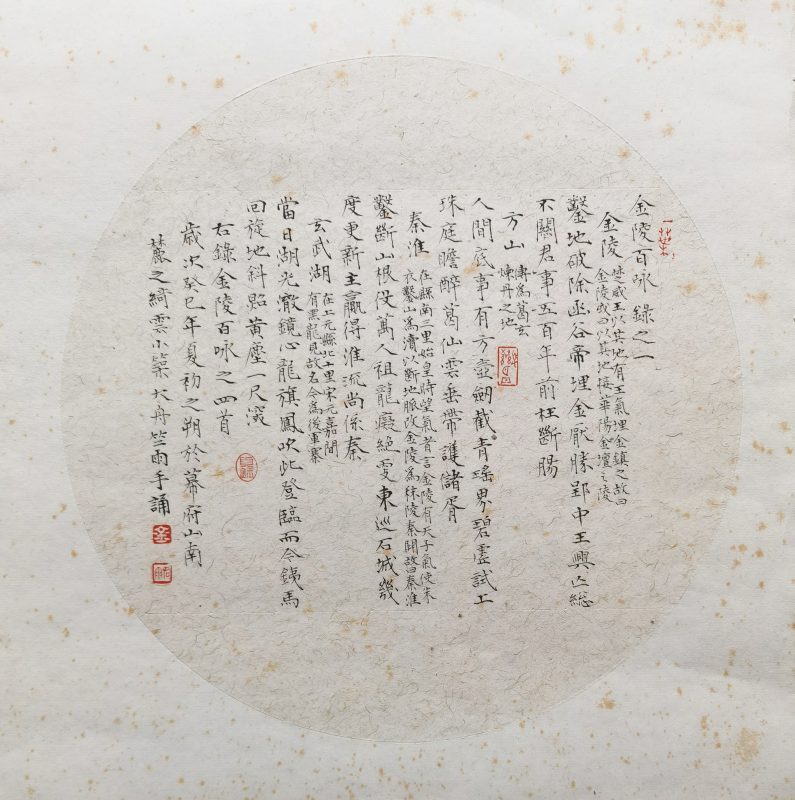 金陵百咏 錄之一
金陵 楚威王以其地有王氣埋金鎮之故曰
金陵或曰以其地接華陽金壇之陵
鑿地破除函谷帝埋金厭勝郢中王興亡総
不關君事五百年前枉斷腸
方山 舊為葛玄
煉丹之地
人間底事有方壺劚截青瑶界碧虚試上
珠庭瞻醉葛仙雲垂帶護諸胥
秦淮 在縣南三里始皇時望氣者言金陵有天子氣使朱
衣鑿山為瀆以斷地脈改金陵為秣陵秦開故曰秦淮
鑿斷山根役萬人祖龍癡絶更東巡石城幾
度更新主贏得淮流尚係秦
玄武湖 在上元縣北十里宋元嘉間
有黑龍見故名今為後軍寨
當日湖光澈鏡心龍旗鳳吹此登臨而今銕馬
回旋地斜照黄塵一尺深
右錄金陵百咏之四首
歲次癸巳年夏初之朔於幕府山南
麓之綺雲小築大舟竺雨手誦